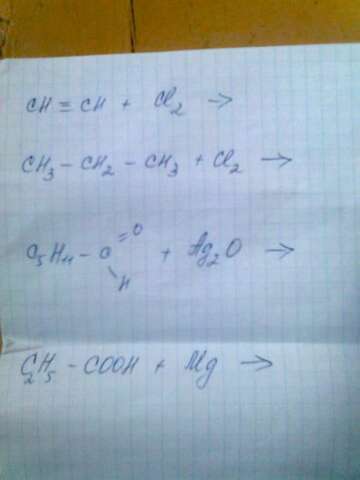 CH = CH + Cl₂ →
CH₃ – CH₂ – CH₃ + Cl₂ →
C₅H₁₁ – C =O H + Ag₂O →
C₂H₅ – COOH + Mg →